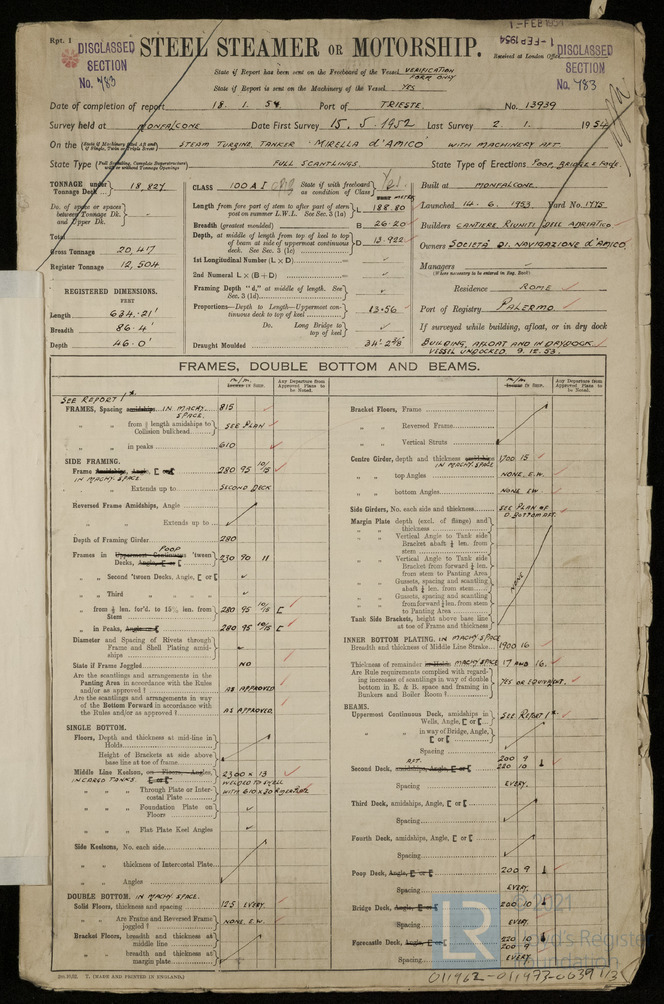 Rpt. 1
DISCLASSED SECTION No. 483
STEEL STEAMER OR MOTORSHIP.
1-FEB 1954
1-FEB 1954
Received at London Office
DISCLASSED SECTION No. 483
State if Report has been sent on the Freeboard of the Vessel VERIFICATION FORM ONLY
State if Report is sent on the Machinery of the Vessel YES
Date of completion of report 18. 1. 54. Port of TRIESTE. No. 13939
Survey held at MONFALCONE Date First Survey 15. 5. 1952 Last Survey 2. 1. 1954
On the (State if Machinery fitted Aft and if Single, Twin or Triple Screw) STEAM TURBINE TANKER 'MIRELLA d'AMICO' WITH MACHINERY AFT.
State Type (Full Scantling, Complete Superstructure with or without Tonnage Openings) FULL SCANTLINGS. State Type of Erections POOP, BRIDGE & FOXLE.
TONNAGE under Tonnage Deck 18,827
Do. of space or spaces between Tonnage Dk. and Upper Dk.
Total
Gross Tonnage 20,417
Register Tonnage 12,504
REGISTERED DIMENSIONS.
FEET
Length 634.21'
Breadth 86.4'
Depth 46.0'
CLASS 100 A 1 State if with freeboard as condition of Class Yes.
FEET METRES
Length from fore part of stem to after part of stern post on summer L.W.L. See Sec. 3 (1a) L 188.80
Breadth (greatest moulded) B 26.20
Depth, at middle of length from top of keel to top of beam at side of uppermost continuous deck. See Sec. 3 (1c) D 13.922
1st Longitudinal Number (L × D)
2nd Numeral L × (B + D)
Framing Depth "d," at middle of length. See Sec. 3 (1d)
Proportions—Depth to Length—Uppermost continuous deck to top of keel 13.56
Do. Long Bridge to top of keel
Draught Moulded 34'-2⅜"
Built at MONFALCONE.
Launched 14. 6. 1953 Yard No. 1775
Builders CANTIERE RIUNITI DELL ADRIATICO
Owners SOCIETÀ DI NAVIGAZIONE d'AMICO
Managers
(Where necessary to be entered in Reg. Book)
Residence ROME
Port of Registry PALERMO
If surveyed while building, afloat, or in dry dock
BUILDING, AFLOAT AND IN DRYDOCK
VESSEL UNDOCKED 9. 12. 53.
FRAMES, DOUBLE BOTTOM AND BEAMS.
m/m. Inches in Ship. Any Departure from Approved Plans to be Noted.
SEE REPORT 1*.
FRAMES, Spacing amidships IN MACHY. SPACE. 815
" " from ⅕ length amidships to Collision bulkhead SEE PLAN
" " in peaks 610
SIDE FRAMING.
Frame Amidships, Angle, [ or IN MACHY SPACE 280 95 10/15
" " Extends up to SECOND DECK
Reversed Frame Amidships, Angle
" " Extends up to
Depth of Framing Girder 280
Frames in Uppermost Continuous 'tween Decks, Angle, [ or POOP 230 90 11
" " Second 'tween Decks, Angle, [ or
" " Third " "
" from ⅕ len. for'd. to 15% len. from Stem 280 95 10/15 [
" in Peaks, Angle, [ or 280 95 10/15 [
Diameter and Spacing of Rivets through Frame and Shell Plating amidships
State if Frame Joggled NO
Are the scantlings and arrangements in the Panting Area in accordance with the Rules and/or as approved? AS APPROVED
Are the scantlings and arrangements in way of the Bottom Forward in accordance with the Rules and/or as approved? AS APPROVED.
SINGLE BOTTOM.
Floors, Depth and thickness at mid-line in Holds
Height of Brackets at side above base line at toe of frame
Middle Line Keelson, on Floors, Angles, [ or IN CARGO TANKS. 2300 × 13 WELDED TO SHELL
" " Through Plate or Intercostal Plate WITH 610 × 20 RIDER PLATE
" " Foundation Plate on Floors
" " Flat Plate Keel Angles
Side Keelsons, No. each side
" " thickness of Intercostal Plate
" " Angles
DOUBLE BOTTOM. IN MACHY. SPACE.
Solid Floors, thickness and spacing 12.5 EVERY.
" " Are Frame and Reversed Frame joggled? NONE. E.W.
Bracket Floors, breadth and thickness at middle line
" " breadth and thickness at margin plate
m/m. Inches in Ship. Any Departure from Approved Plans to be Noted.
Bracket Floors, Frame
" " Reversed Frame
" " Vertical Struts
Centre Girder, depth and thickness amidships IN MACHY. SPACE 1700 15
" " top Angles NONE. E.W.
" " bottom Angles NONE EW
Side Girders, No. each side and thickness SEE PLAN OF D. BOTTOM AFT.
Margin Plate depth (excl. of flange) and thickness
" " Vertical Angle to Tank side Bracket abaft ¼ len. from stem
" " Vertical Angle to Tank side Bracket from forward ¼ len. from stem to Panting Area
" " Gussets, spacing and scantling abaft ¼ len. from stem
" " Gussets, spacing and scantling from forward ¼ len. from stem to Panting Area
Tank Side Brackets, height above base line at toe of Frame and thickness
NONE
INNER BOTTOM PLATING. IN MACHY. SPACE
Breadth and thickness of Middle Line Strake 1900 16
Thickness of remainder in Holds MACHY SPACE 17 AND 16.
Are Rule requirements complied with regarding increases of scantlings in way of double bottom in E. & B. space and framing in Bunkers and Boiler Room? YES OR EQUIVALENT.
BEAMS.
Uppermost Continuous Deck, amidships in Wells, Angle, [ or SEE REPORT 1*.
" " in way of Bridge, Angle, [ or
Spacing
Second Deck, amidships, Angle, [ or AFT. 200 9 220 10
Spacing EVERY.
Third Deck, amidships, Angle, [ or
Spacing
Fourth Deck, amidships, Angle, [ or
Spacing
Poop Deck, Angle, [ or 200 9
Spacing EVERY.
Bridge Deck, Angle, [ or 200 10
Spacing EVERY
Forecastle Deck, Angle, [ or 220 10 200 9
Spacing EVERY
T. (MADE AND PRINTED IN ENGLAND.)
LR © 2021 Lloyd's Register Foundation
011962-011973-0039 1/3